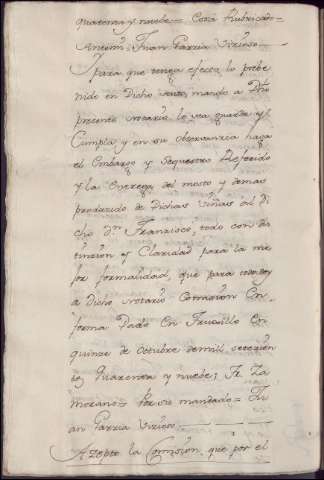 quarenta y nuebe = Cota Rubricado =
Antemi, Juan Garzia Virioso =
para que tenga efecto lo prebe
nido en Dicho auto, mando a Dho
presente Notario lo vea, guarde y
Cumpla y en su observanzia haga
el Embargo y Sequestro Referido
y la Entrega del mosto y demas
produzido de Dichas Viñas al di
cho Dn. Franzisco, todo con dis
tinzion y Claridad para la me
jor formalidad, que para todo doy
a dicho Notario Comision En
forma Dado En Truxillo En
quinze de Octubre de mil setezien
tos Quarenta y nuebe; Fr. Za
morano = Por su mandado = Ju
an Garzia Virioso
Azepto la Comision, que por el